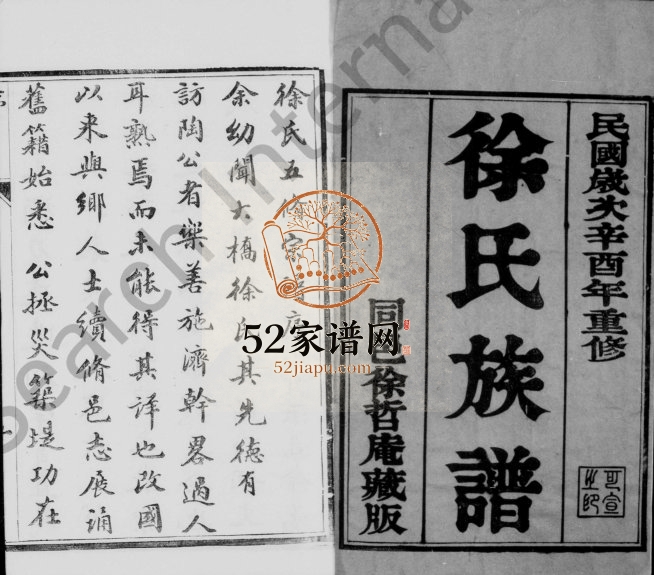 民國歲次辛酉年重修
徐氏族譜
同 徐哲庵藏版
徐氏五修宗譜序
余幼聞大橋徐氏其先德有
訪陶公者樂善施濟幹畧過人
耳熟焉而未能得其詳也改國
以来與鄉人士續脩邑志展誦
舊籍始悉 公拯災築堤功在
52家谱网
52jiapu.com
Search Interna